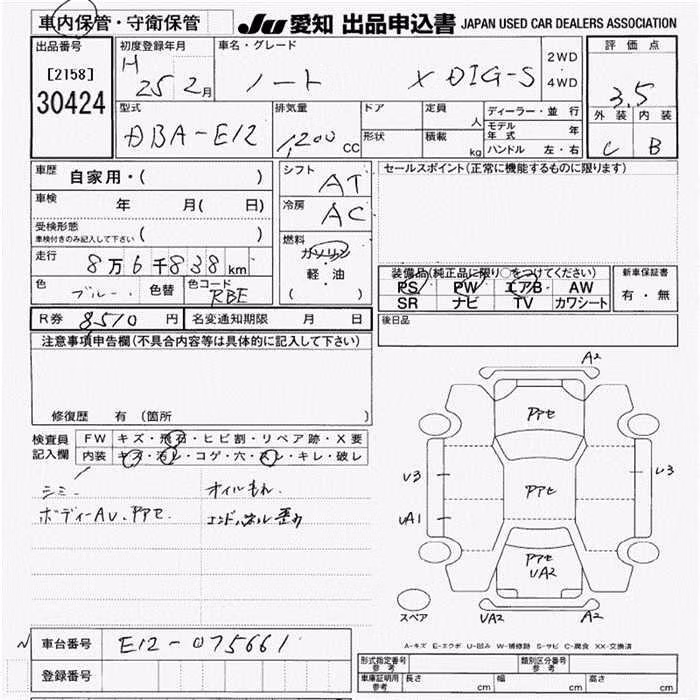 車内保管・守衛保管
JU 愛知 出品申込書 JAPAN USED CAR DEALERS ASSOCIATION
出品番号
[2158]
30424
初度登録年月
H 25 2月
車名・グレード
ノート X DIG-S
2WD
4WD
評価点
3.5
外装 内装
C B
型式
DBA-E12
排気量
1,200 cc
ドア
形状
定員 人
積載 kg
ディーラー・並行
モデル年式 年
ハンドル 左・右
車歴 自家用・( )
車検 年 月( 日)
受検形態 ( )
車検付きのみ記入して下さい
走行 8万6千838km
色 ブルー 色替 色コード RBE
シフト AT
冷房 AC
燃料
ガソリン
軽・油
( )
セールスポイント(正常に機能するものに限ります)
装備品(純正品に限り○をつけてください)
PS PW エアB AW
SR ナビ TV カワシート
新車保証書
有・無
R券 8510 円 名変通知期限 月 日
後日品
注意事項申告欄(不具合内容等は具体的に記入して下さい)
修復歴 有 (箇所 )
検査員記入欄
FW キズ・飛石・ヒビ割・リペア跡・X要
内装 キズ・汚レ・コゲ・穴・スレ・キレ・破レ
シミ オイルもれ
ボディーAU.PPセ. エンドパネル歪み
A2
PPセ
U3
PPセ
U3
UA1
PPセ
UA2
スペア
UA2
A2
A-キズ E-エクボ U-凹み W-補修跡 S-サビ C-腐食 XX-交換済
車台番号 E12-075661
登録番号
型式指定番号 参考
類別区分番号 参考
車庫証明用 参考
長さ cm 幅 cm 高さ cm